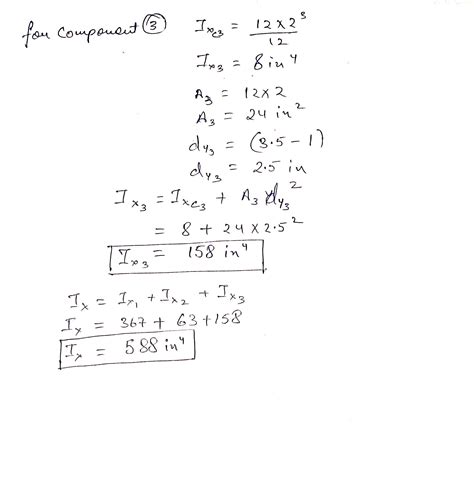 for component ③ Ixc3 = 12 × 2³ / 12
Ix3 = 8 in⁴
A3 = 12×2
A3 = 24 in²
dy3 = (3.5 - 1)
dy3 = 2.5 in
Ix3 = Ixc3 + A3 × dy3²
= 8 + 24 × 2.5²
Ix3 = 158 in⁴
Ix = Ix1 + Ix2 + Ix3
Ix = 367 + 63 + 158
Ix = 588 in⁴